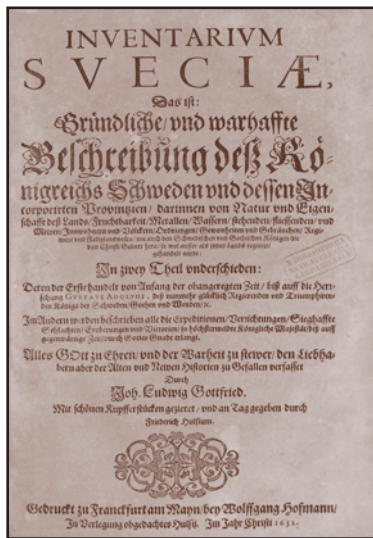 INVENTARIVM
SVECIÆ,
Das ist:
Gründliche/ vnd warhaffte
Beschreibung deß Kö-
nigreichs Schweden vnd dessen In-
corporirten Provintzien/ darinnen von Natur vnd Eigen-
schafft deß Lands/ Fruchtbarkeit/ Metallen/ Wassern/ stehenden/ fliessenden/ vnd
Meeren/ Innwohnern vnd Völckern/ Ordnungen/ Gewonheiten vnd Gebräuchen/ Regi-
ment vnd Religionswesen/ wie auch den Schwedischen vnd Gothischen Königen die
von Christi Geburt hero/ so wol ausser als inner Lands regiert/
gehandelt wird:
In zwey Theil vnderschieden:
Deren der Erste handelt von Anfang der obangeregten Zeit/ biß auff die Herr-
schung GVSTAVI ADOLPHI, deß nunmehr glücklich Regierenden vnd Triumphiren-
den Königs der Schweden/ Gothen vnd Wenden/ ec.
Im Andern werden beschrieben alle die Expeditionen/ Verrichtungen/ Sieghaffte
Schlachten/ Eroberungen vnd Victorien/ so höchstermelder Königliche Majestät/ biß auff
gegenwärtige Zeit/ durch Gottes Gnade erlangt.
Alles GOtt zu Ehren/ vnd der Warheit zu stewer/ den Liebha-
bern aber der Alten vnd Newen Historien zu Gefallen verfasset
Durch
Joh. Ludwig Gottfried.
Mit schönen Kupfferstücken gezieret/ vnd an Tag gegeben durch
Friederich Hulsium.
Gedruckt zu Franckfurt am Mayn/ bey Wolffgang Hofmann/
In Verlegung obgedachtes Hulsii. Im Jahr Christi